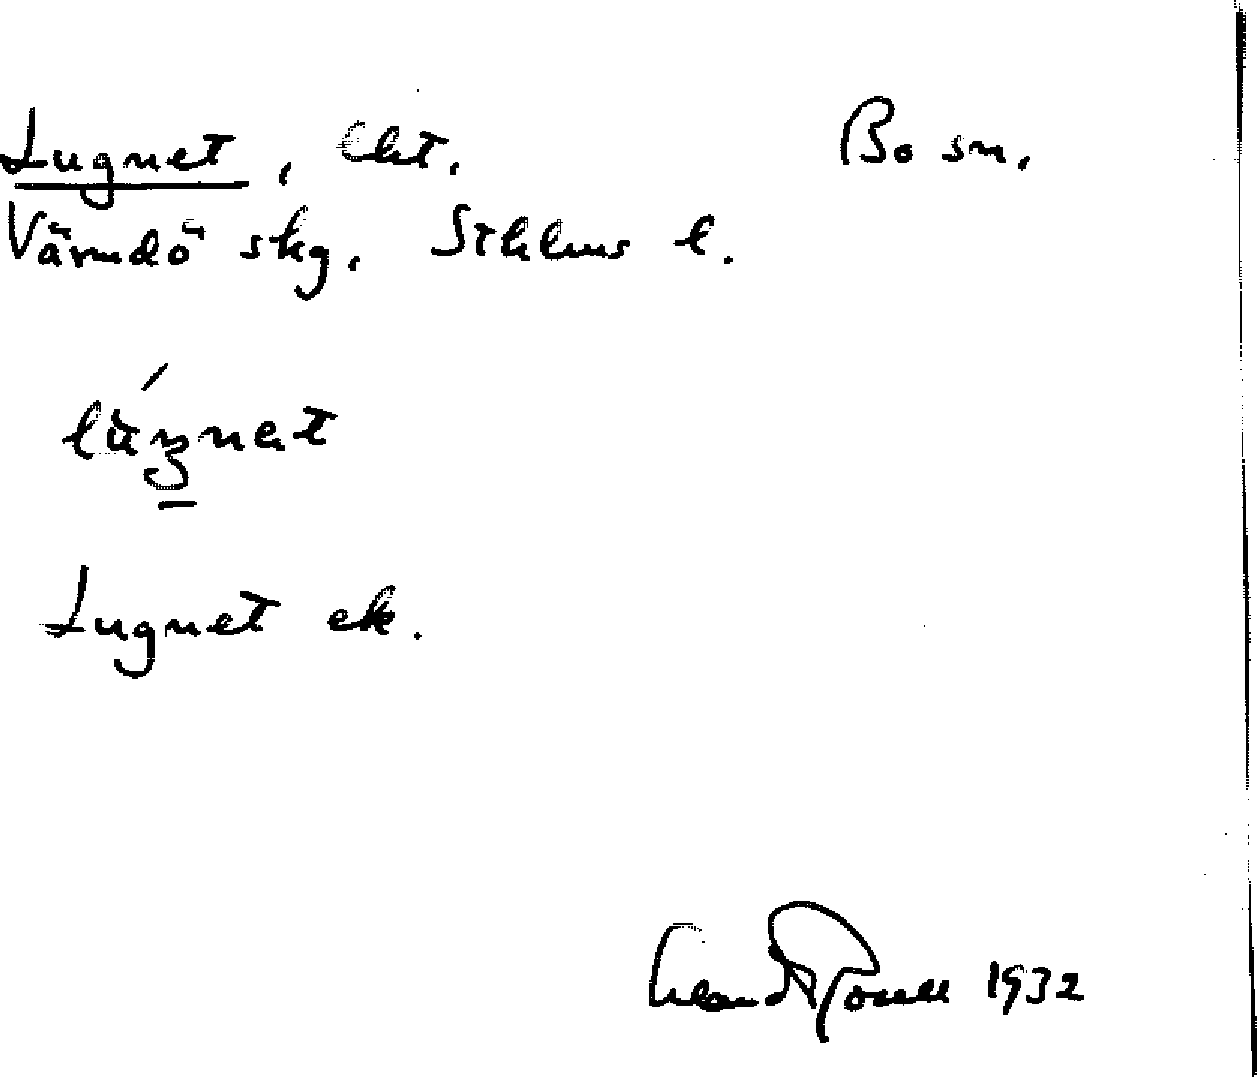 Lugnet, lht. Bo sn.
Värmdö skg. Sthlms l.
Lugnet ek.
1932